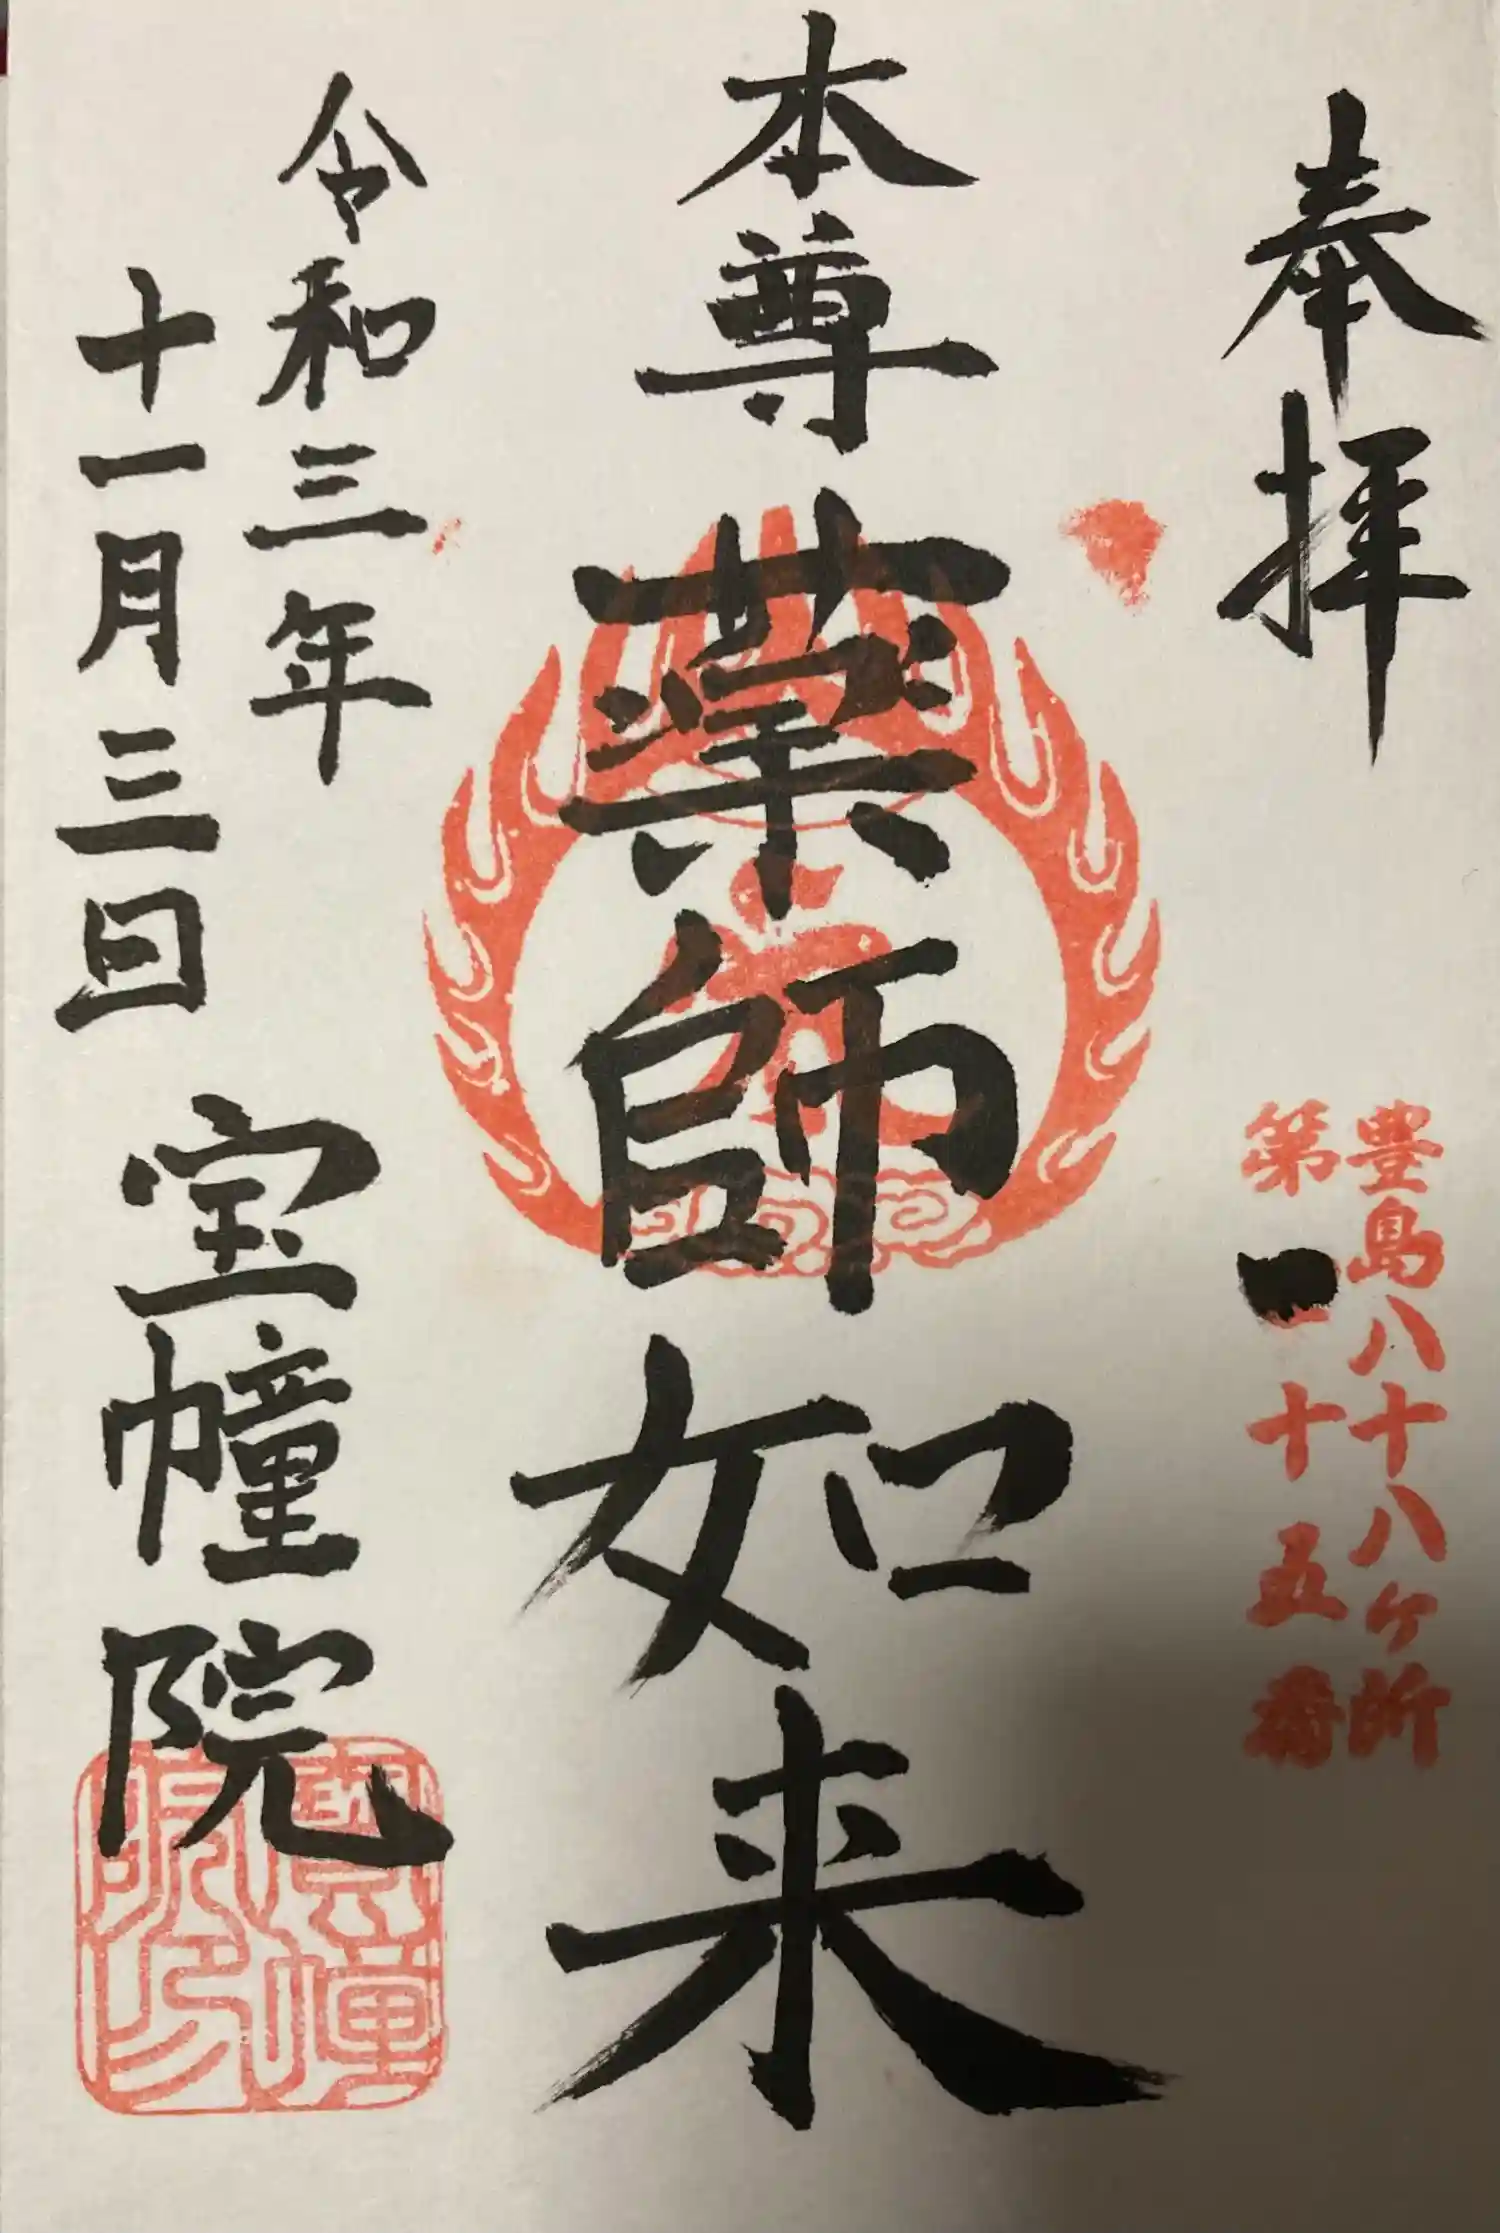 奉拝
豊島八十八ケ所
第 十五番
本尊 薬師如来
令和三年
十一月三日
宝幢院
寶幢
院印